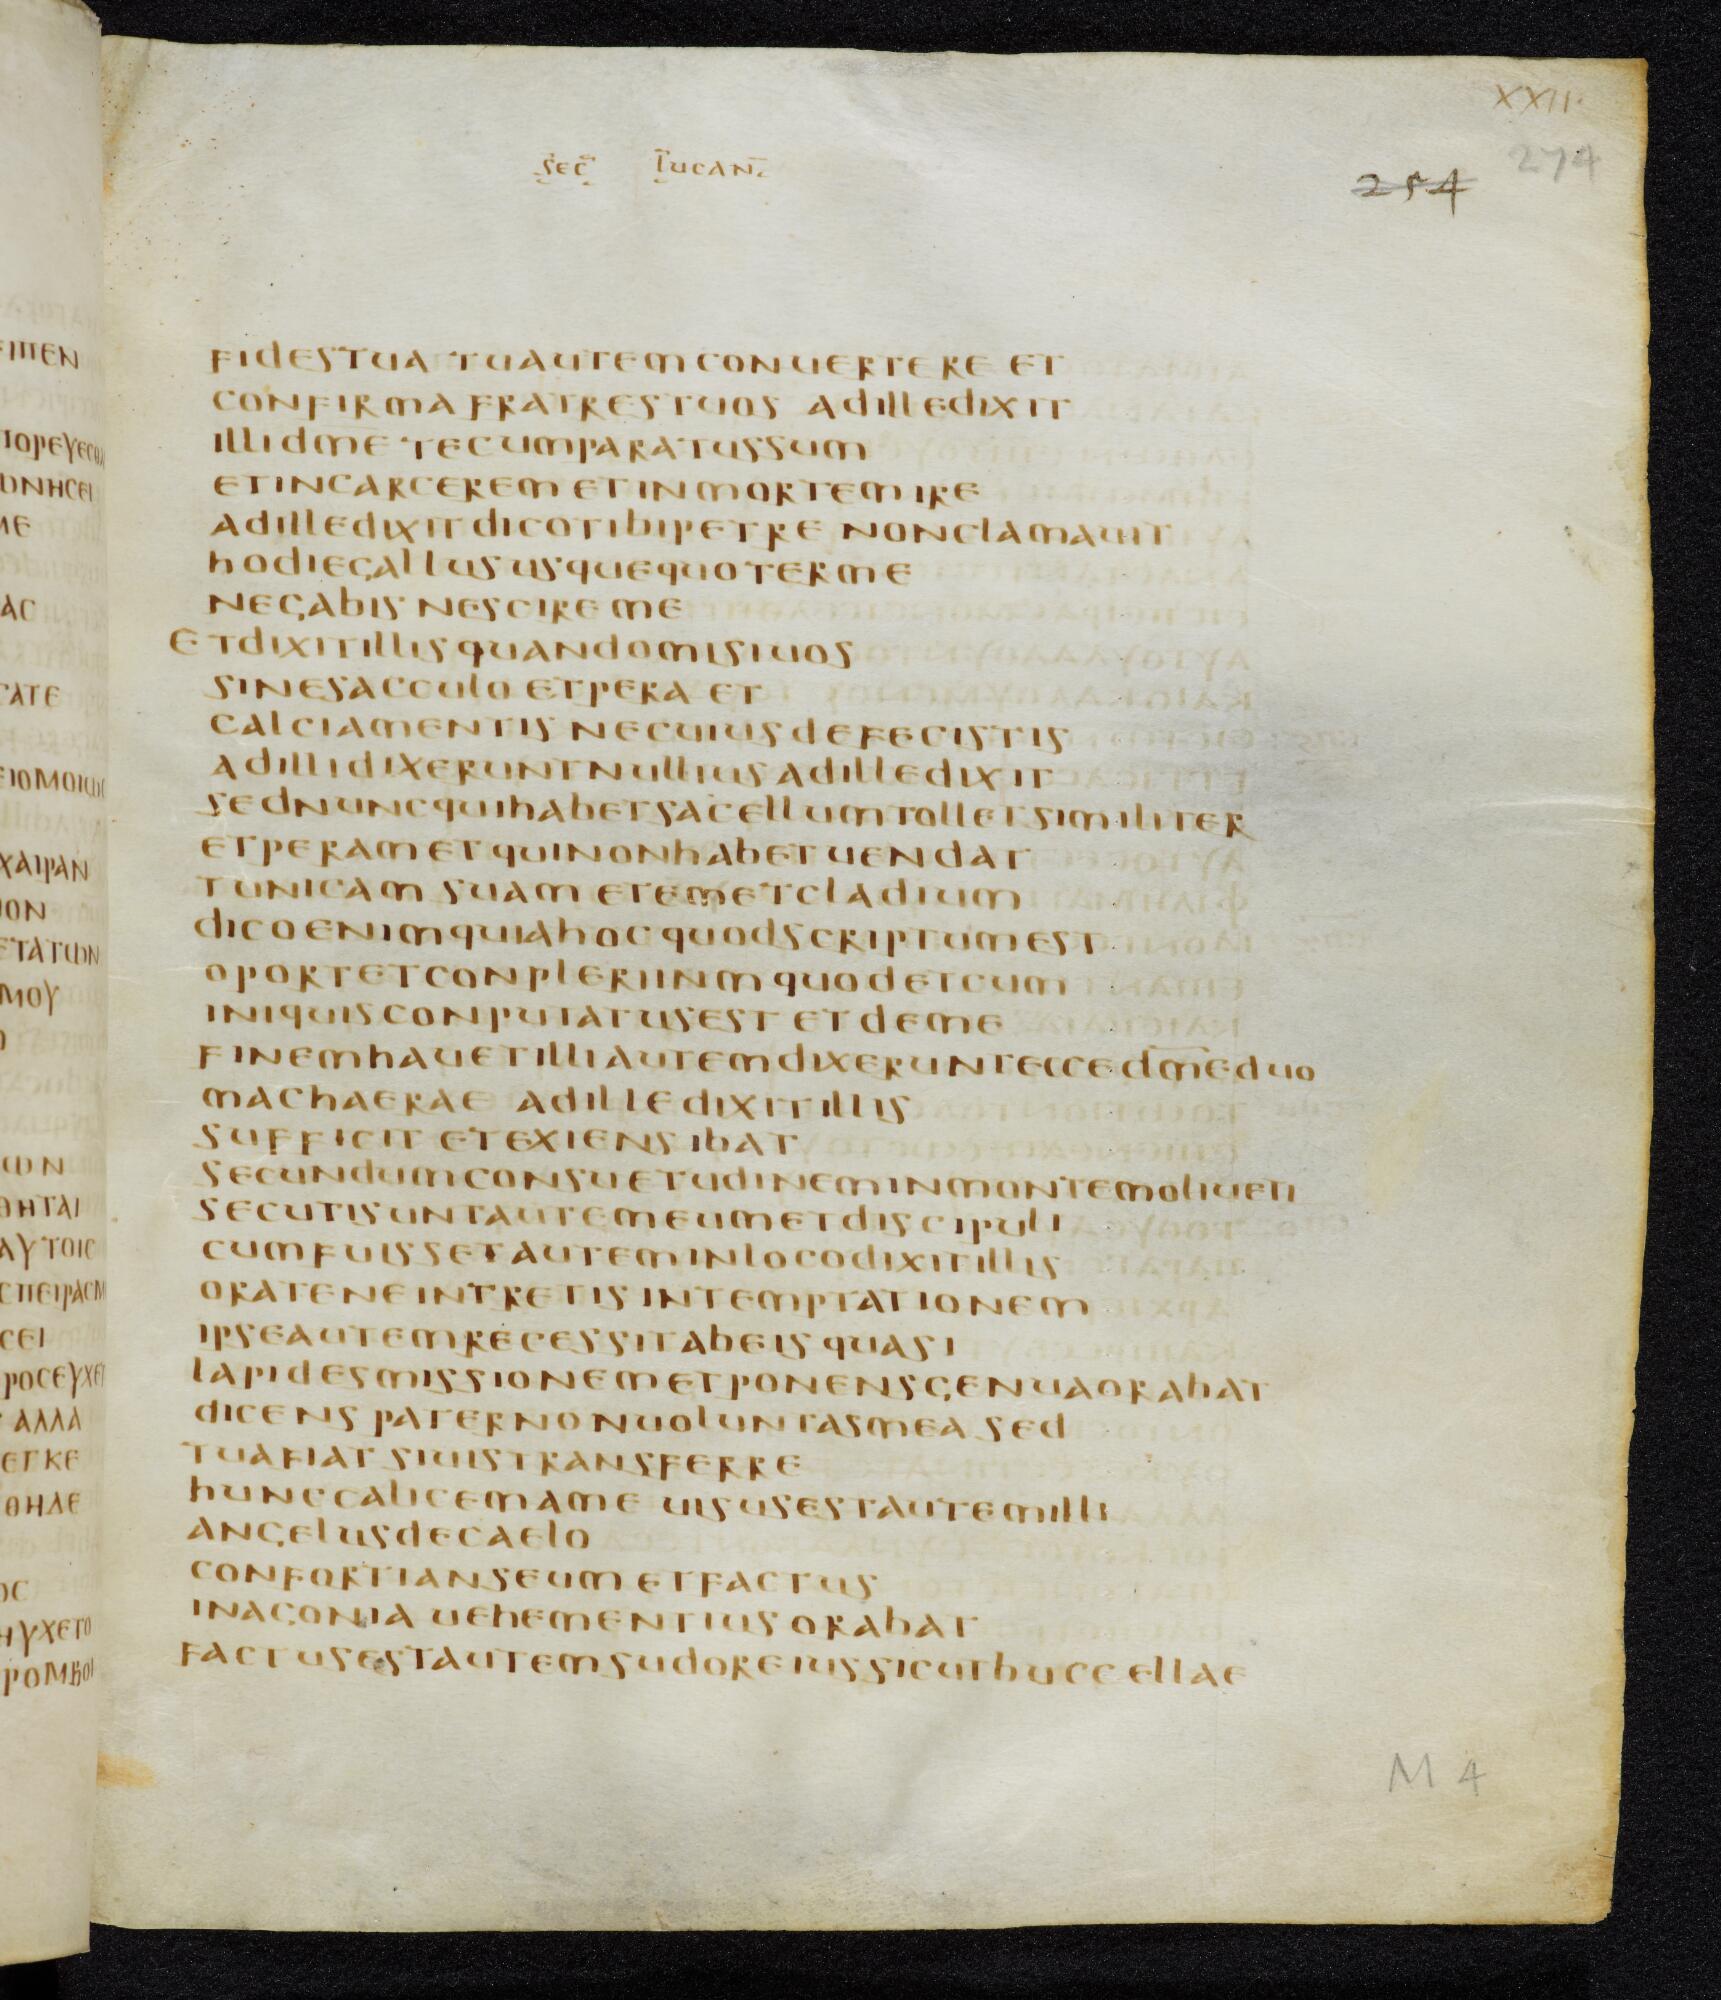 XXII.
274
254
sec̄ lucan̄
fidestua tuautemconuertere et
confirmafratrestuos adilledixit
illidm̅e tecumparatussum
etincarcerem etinmortemire
adilledixitdicotibipetre nonclamauit
hodiegallususquequoterme
negabis nescireme
Etdixitillisquandomisiuos
sinesacculo etpera et
calciamentis necuiusdefecistis
adillidixeruntnulliusadilledixit
sednuncquihabetsacellumtolletsimiliter
etperametquinonhabetuendat
tunicam suam etemetcladium
dicoenimquiahocquodscriptumest
oportetconpleriinmquodetcum
iniquisconputatusest etdeme
finemhauetilliautemdixerunteccedm̅eduo
machaerae adilledixitillis
sufficit etexiensibat
secundumconsuetudineminmontemoliueti
secutisuntautemeumetdiscipuli
cumfuissetauteminlocodixitillis
orateneintretisintemptationem
ipseautemrecessitabeisquasi
lapidesmissionemetponensgenuaorabat
dicens paternonuoluntasmea sed
tuafiat siuistransferre
hunccalicemame uisusestautemilli
angelusdecaelo
confortianseum etfactus
inagonia uehementiusorabat
factusestautemsudoreiussicutbuccellae
M 4
ειπεν
πορευεσθ
ωνησει
με
ας
γατε
ειομοιως
χαιραν
ετατων
μου
ων
θηται
αυτοις
σπειρασμ
σει
ροσευχετ
αλλα
εγκε
θηδε
ος
ηυχετο
ρομβοι